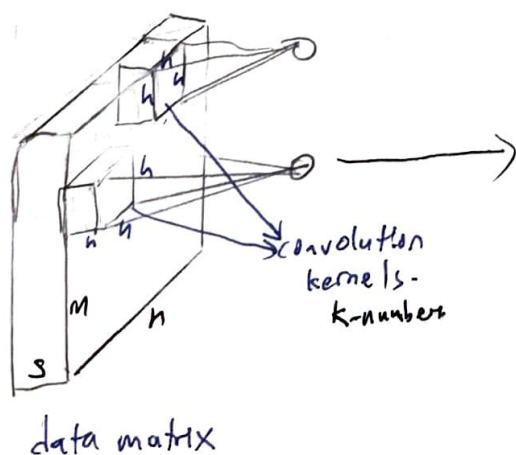 h
h
h
h
h
h
convolution
kernels-
k-numbers
M
n
3
data matrix